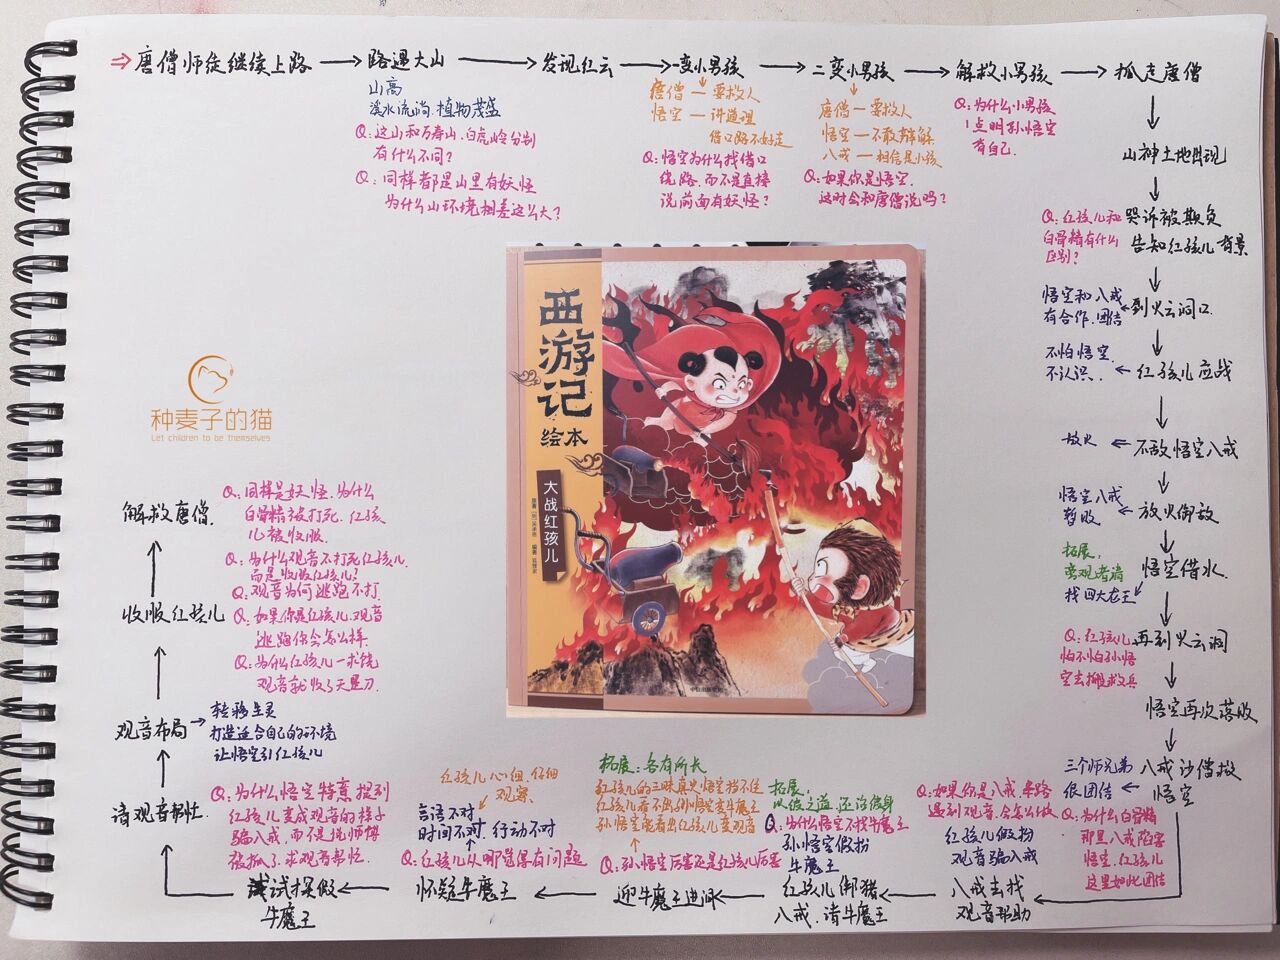 ⇒唐僧师徒继续上路 → 路遇大山 → 发现红云 → 一变小男孩 → 二变小男孩 → 解救小男孩 → 抓走唐僧
山高
溪水流淌.植物茂盛
Q:这山和万寿山.白虎岭分别
有什么不同?
Q:同样都是山里有妖怪
为什么山环境相差这么大?
唐僧—要救人
悟空—讲道理
借口路不好走
Q:悟空为什么找借口
绕路.而不是直接
说前面有妖怪?
唐僧—要救人
悟空—不敢辩解
八戒—相信是小孩
Q:如果你是悟空.
这时会和唐僧说吗?
Q:为什么小男孩
1点明孙悟空
有自己.
山神土地出现
Q:红孩儿和
白骨精有什么
区别?
哭诉被欺负
告知红孩儿背景
悟空和八戒
有合作.团结
到火云洞口
不怕悟空.
不认识.
红孩儿应战
放火
不敌悟空八戒
悟空八戒
暂败
放火御敌
拓展,
旁观者清
找四大龙王
悟空借水
Q:红孩儿
怕不怕孙悟
空去搬救兵
再到火云洞
悟空再次落败
三个师兄弟
很团结
八戒沙僧救
悟空
Q:为什么白骨精
那里八戒陷害
悟空.红孩儿
这里如此团结
Q:如果你是八戒.半路
遇到观音.会怎么做
红孩儿假扮
观音骗八戒
八戒去找
观音帮助
拓展:
以彼之道.还治彼身
Q:为什么悟空不找牛魔王
孙悟空假扮
牛魔王
红孩儿绑猪
八戒.请牛魔王
拓展:各有所长
红孩儿的三昧真火悟空挡不住
红孩儿看不出孙悟空变牛魔王
孙悟空能看出红孩儿变观音
Q:孙悟空厉害还是红孩儿厉害
迎牛魔王进洞
红孩儿心细.仔细
观察.
言语不对
时间不对.行动不对
Q:红孩儿从哪觉得有问题
怀疑牛魔王
试探假
牛魔王
请观音帮忙
Q:为什么悟空特意提到
红孩儿变成观音的样子
骗八戒,而不是说师傅
被抓了.求观音帮忙.
观音布局
转移生灵
打造适合自己的环境
让悟空引红孩儿
收服红孩儿
解救唐僧.
Q:同样是妖怪.为什么
白骨精被打死.红孩
儿被收服.
Q:为什么观音不打死红孩儿
而是收服红孩儿?
Q:观音为何逃跑不打
Q:如果你是红孩儿.观音
逃跑你会怎么样
Q:为什么红孩儿一求饶
观音就收了天罡刀
种麦子的猫
Let children to be themselves
西游记
绘本
大战红孩儿
中信出版集团